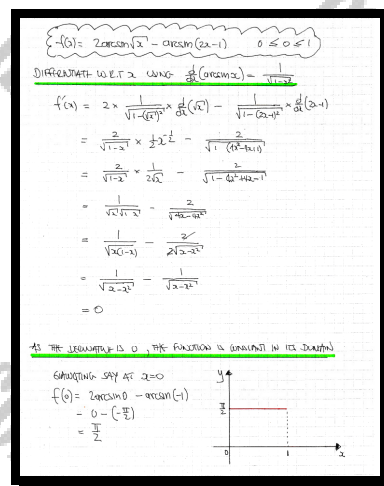 f(x) = 2arcsin√x - arcsin(2x-1)   0 ≤ x ≤ 1
DIFFERENTIATE W.R.T x USING d/dx(arcsinx) = 1/√(1-x²)
f'(x) = 2 × 1/√(1-(√x)²) × d/dx(√x) - 1/√(1-(2x-1)²) × d/dx(2x-1)
= 2/√(1-x) × ½x^(-½) - 2/√(1-(4x²-4x+1))
= 2/√(1-x) × 1/(2√x) - 2/√(1-4x²+4x-1)
= 1/(√x√(1-x)) - 2/√(4x-4x²)
= 1/√(x(1-x)) - 2/(2√(x-x²))
= 1/√(x-x²) - 1/√(x-x²)
= 0
AS THE DERIVATIVE IS 0, THE FUNCTION IS CONSTANT IN ITS DOMAIN
EVALUATING SAY AT x=0
f(0) = 2arcsin0 - arcsin(-1)
= 0 - (-π/2)
= π/2
y
π/2
0 1 x